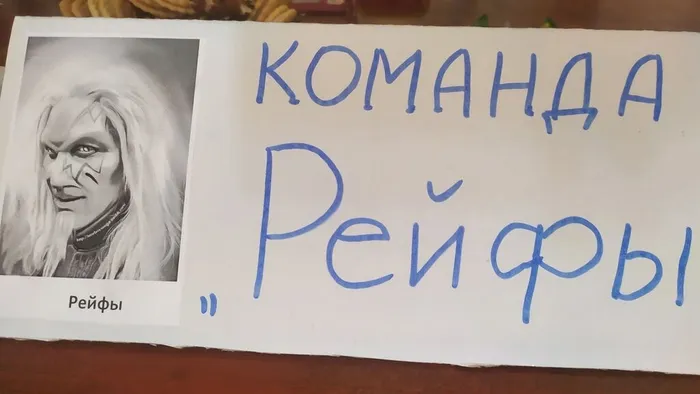 КОМАНДА
„Рейфы
Рейфы